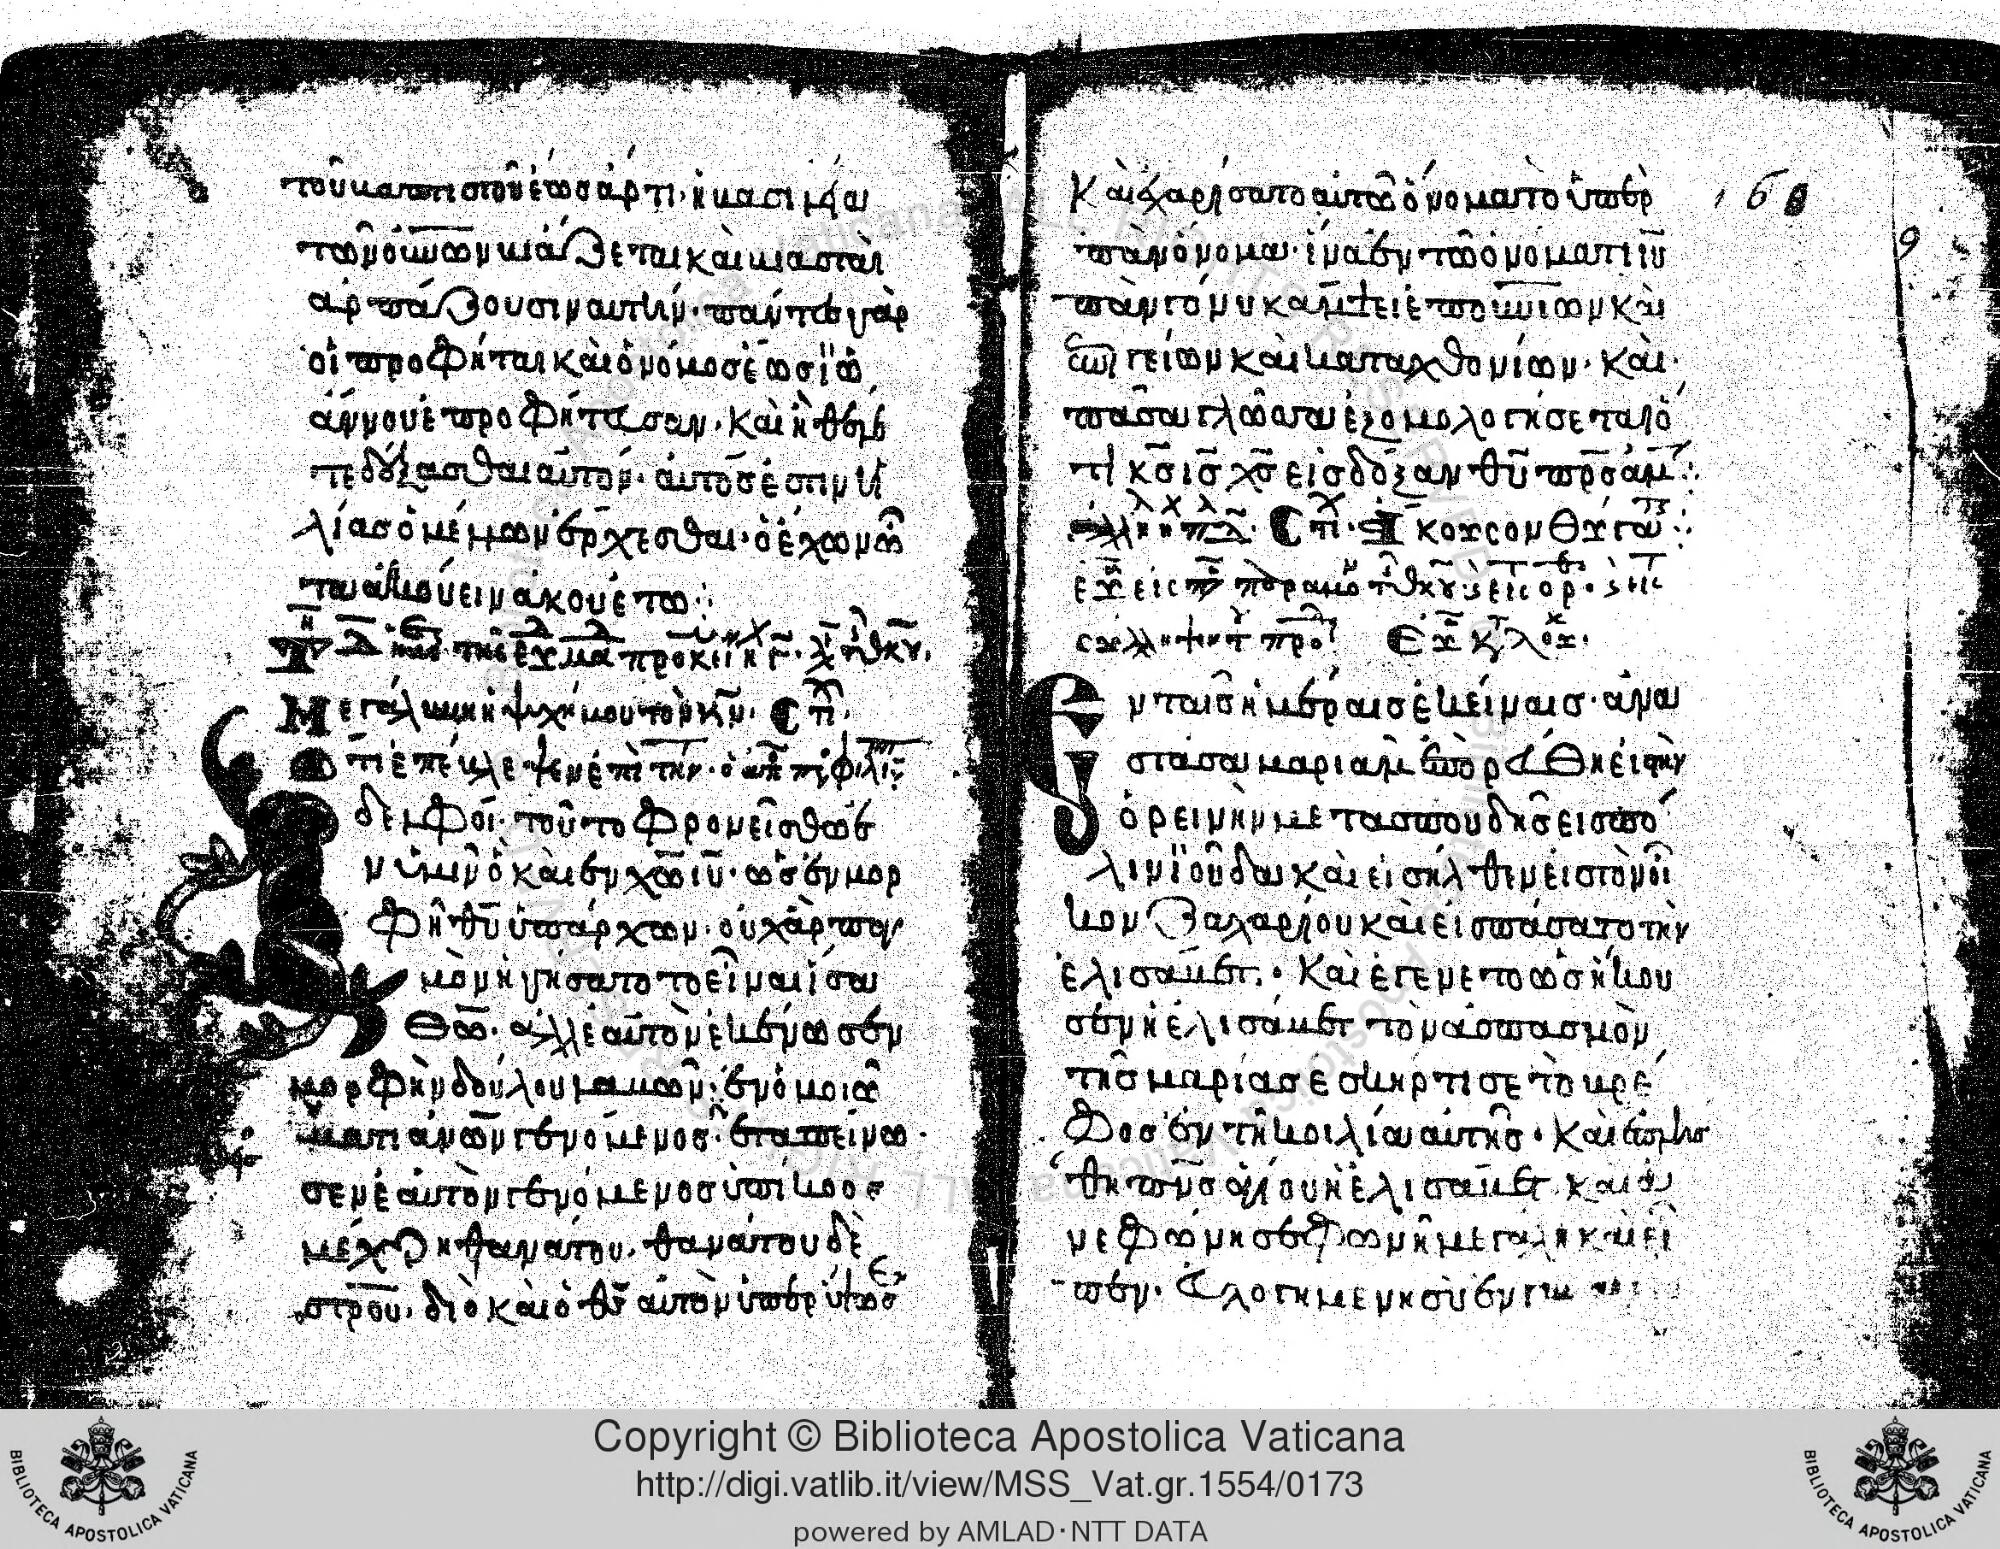 του βαπτιστοῦ ἕως ἄρτι· ἡ βασιλεία
τῶν οὐνῶν βιάζεται καὶ βιασταὶ
ἁρπάζουσιν αὐτήν· πάντες γὰρ
οἱ προφῆται καὶ ὁ νόμος ἕως ἰω
άννου ἐπροφήτευσαν· καὶ εἰ θέλε
τε δέξασθαι αὐτόν· αὐτός ἐστιν ἡ
λίας ὁ μέλλων ἔρχεσθαι· ὁ ἔχων ὦ
τα ἀκούειν ἀκουέτω:
Μεγαλύνει ἡ ψυχή μου τὸν κν· Στι
ὅτι ἐπέβλεψεν ἐπὶ τὴν· ὁ απ πρ φιλιπ
δελφοί· τοῦτο φρονείσθω ἐ
ν ὑμῖν ὃ καὶ ἐν χω ιυ· ὃς ἐν μορ
φῆ θυ ὑπάρχων· οὐχ ἁρπαγ
μὸν ἡγήσατο τὸ εἶναι ἴσα
θω· ἀλλ' ἑαυτὸν ἐκένωσεν
μορφὴν δούλου λαβών· ἐν ὁμοιώ
ματι ἀνων γενόμενος· ἐταπείνω
σεν ἑαυτὸν γενόμενος ὑπήκοος
μέχρι θανάτου, θανάτου δὲ
στρου· διὸ καὶ ὁ θς αὐτὸν ὑπερύψωσε
Καὶ ἐχαρίσατο αὐτῶ ὄνομα τὸ ὑπὲρ 168
πὰν ὄνομα· ἵνα ἐν τῶ ὀνόματι ιυ 9
πὰν γόνυ κάμψει ἐπουνίων καὶ
ἐπιγείων καὶ καταχθονίων· καὶ
πᾶσα γλῶσσα ἐξομολογήσεται ὅ
τι κς ις χς εἰς δόξαν θυ πρς ἀμ:
Ἄκουσον θύγα:
Ἐν ταῖς ἡμέραις ἐκείναις· ἀνα
στᾶσα μαριὰμ ἐπορεύθη εἰς τὴν
ὀρεινὴν μετὰ σπουδῆς εἰς πό
λιν ἰούδα καὶ εἰσῆλθεν εἰς τὸν οἶ
κον ζαχαρίου καὶ εἰσπάσατο τὴν
ἐλισάβετ· Καὶ ἐγένετο ὡς ἤκου
σεν ἡ ἐλισάβετ τὸν ἀσπασμὸν
τῆς μαρίας ἐσκήρτισε τὸ βρέ
φος ἐν τῆ κοιλία αὐτῆς· Καὶ ἐπλήσ
θη πνς ἁγίου ἡ ἐλισάβετ καὶ ἀ
νεφώνησε φωνῆ μεγάλη καὶ εἶ
πεν· Εὐλογημένη σὺ ἐν γυ
Copyright © Biblioteca Apostolica Vaticana
http://digi.vatlib.it/view/MSS_Vat.gr.1554/0173
powered by AMLAD·NTT DATA
BIBLIOTECA APOSTOLICA VATICANA
BIBLIOTECA APOSTOLICA VATICANA